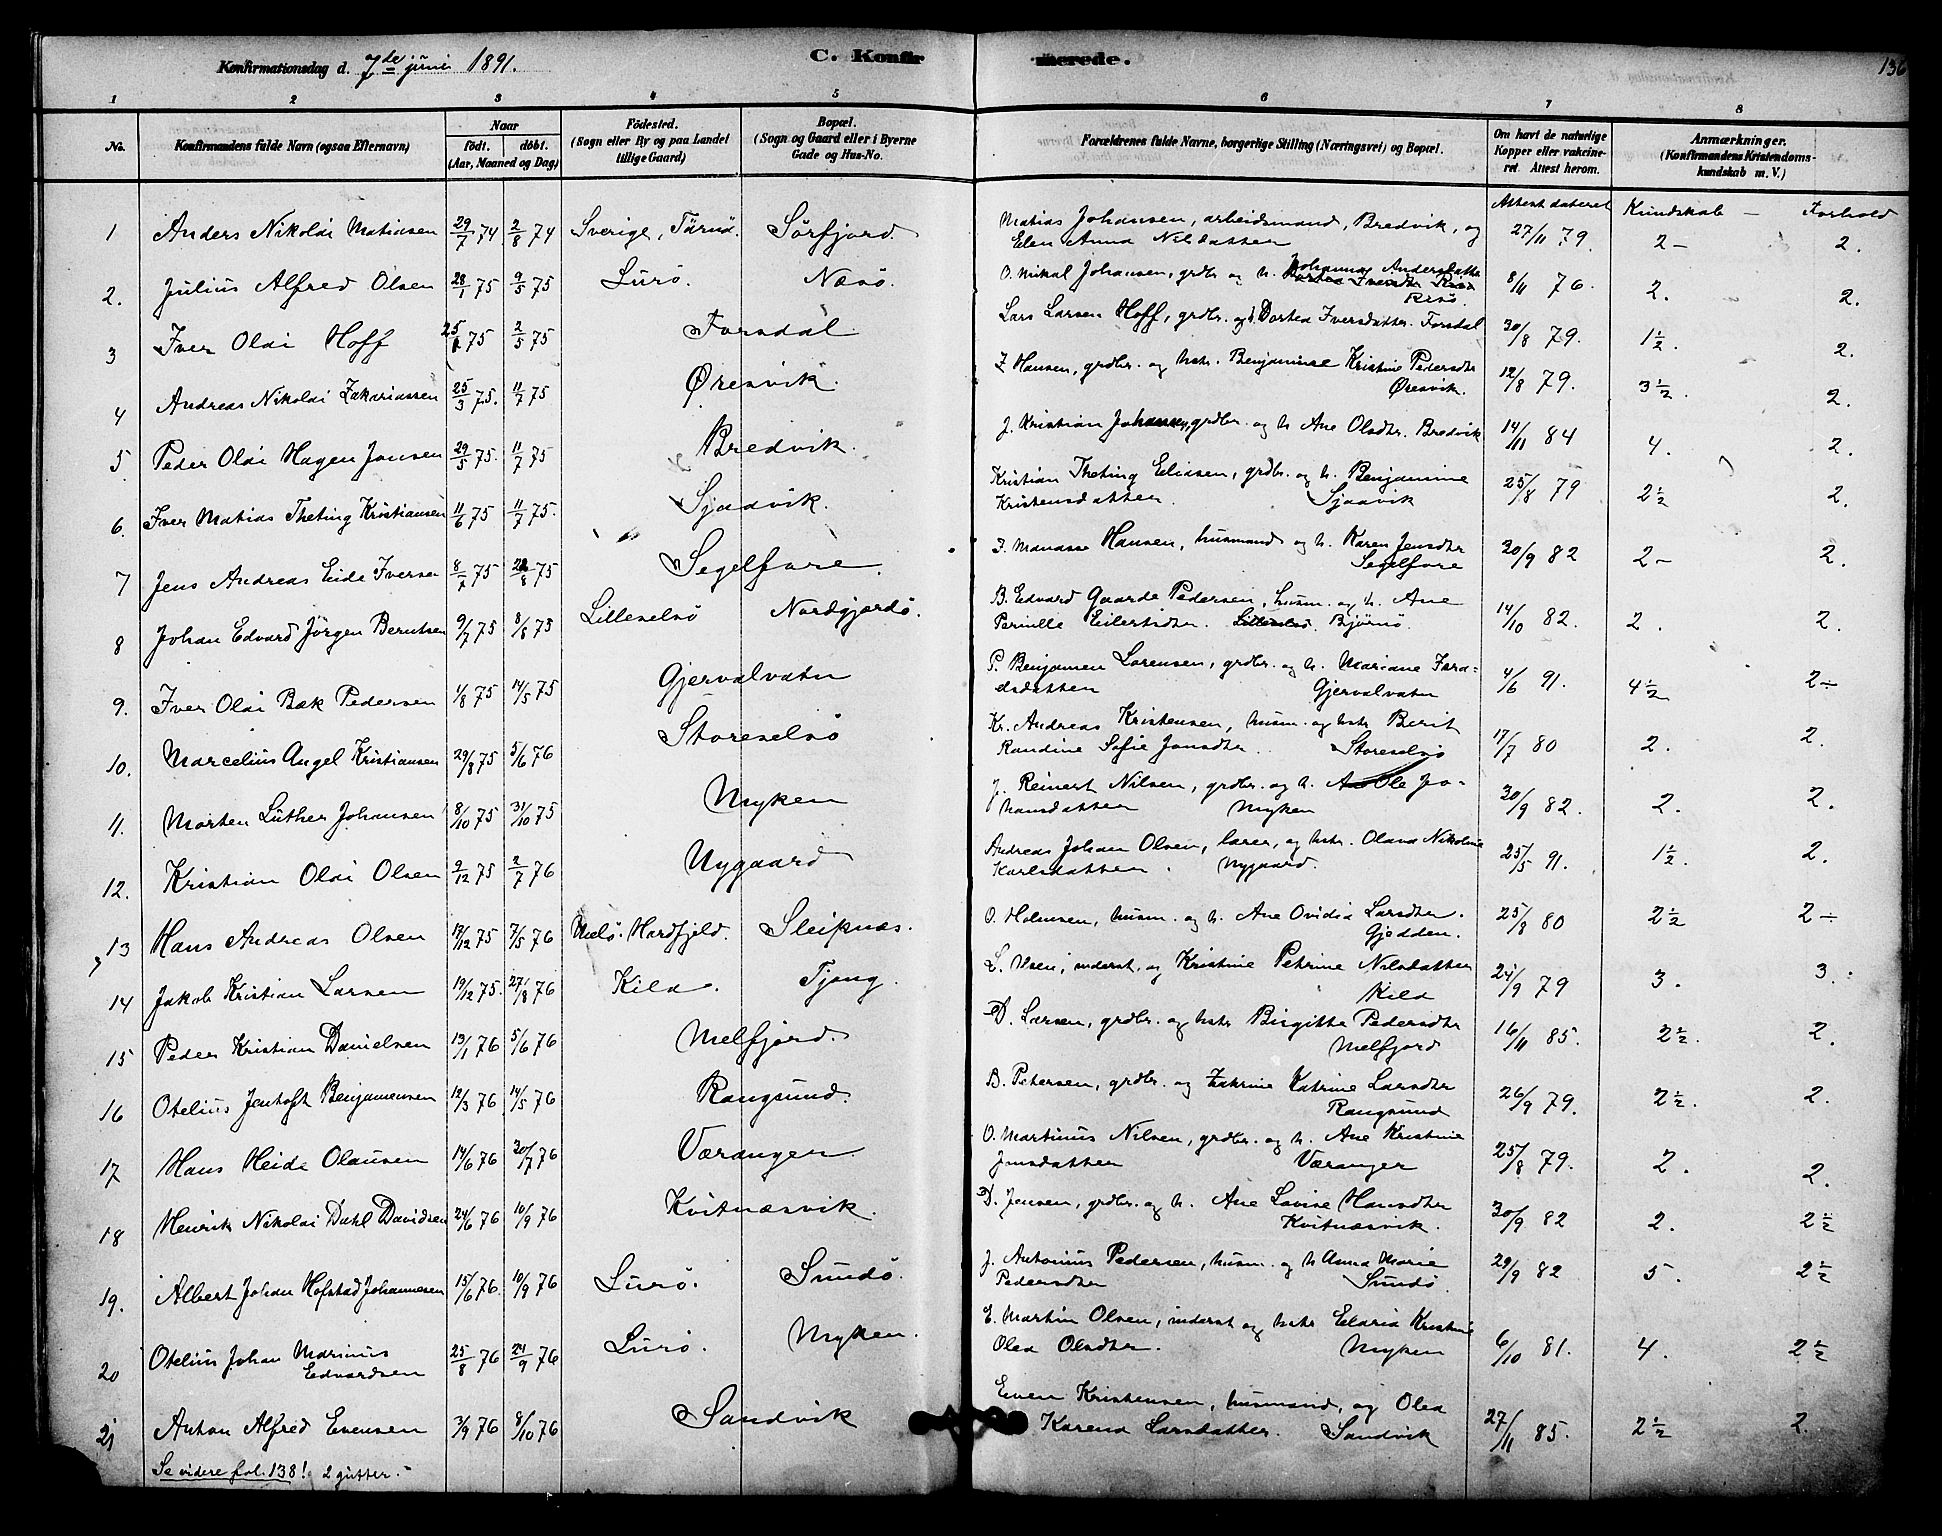 Konfirmationsdag d. 7de juni 1891.
C. Konfirmerede.
136
1 2 3 4 5 6 7 8
No.
Konfirmandens fulde Navn (ogsaa Efternavn)
Naar
født. døbt.
(Aar, Maaned og Dag)
Fødested.
(Sogn eller By og paa Landet tillige Gaard)
Bopæl.
(Sogn og Gaard eller i Byerne Gade og Hus-No.
Forældrenes fulde Navne, borgerlige Stilling (Næringsvei) og Bopæl.
Om havt de naturlige Kopper eller vakcineret. Attest herom.
Anmærkninger.
(Konfirmandens Kristendomskundskab m. V.)
Attest dateret Kundskab — Forhold
1 Anders Nikolai Matiasen 29/7 74 2/8 74 Sverige, Tärnä. Sörfjord. Matias Johansen, arbeidsmand, Bredvik, og Elen Anna Nilsdatter 27/11 79. 2- 2.
2. Julius Alfred Olsen 28/1 75 9/5 75 Lurö. Næsö. O. Mikal Johansen, grdbr. og h. Johanna Andersdatter Resö. 8/11 76. 2. 2.
3 Iver Olai Hoff 25/1 75 2/5 75 Forsdal Lars Larsen Hoff, grdbr. og h. Dortea Iversdatter. Forsdal 30/8 79. 1½. 2.
4 Andreas Nikolai Zakariassen 25/3 75. 11/7 75 Øresvik. Z Hansen, grdbr. og hstr. Benjamine Kristine Pedersdtr Øresvik. 12/8 79. 3½. 2.
5 Peder Olai Hagen Jonsen 29/5 75. 11/7 75 Bredvik. J. Kristian Johansen, grdbr. og h Ane Olsdtr. Bredvik 14/11 84 4. 2.
6. Iver Matias Theting Kristiansen 11/6 75 11/7 75. Sjaavik. Kristian Theting Eliasen, grdbr. og h. Benjamine Kristensdatter. Sjaavik 25/8 79 2½ 2.
7 Jens Andreas Eide Iversen 8/7 75 22/8 75 Segelfore. I. Manasse Hansen, husmand og h. Karen Jensdtr Segelfore 30/9 82 2- 2.
8 Johan Edvard Jörgen Berntsen 9/7 75 8/8 75 Lilleselsö Nordgjordö. B. Edvard Gaarde Pedersen, husm. og h. Ane Pernille Eilertsdtr. Lilleselsö. Bjørnö. 14/10 82. 2. 2.
9. Iver Olai Bæk Pedersen 1/8 75 14/5 75 Gjervalvatn P. Benjamen Lorensen, grdbr. og h. Mariane Faradsdatter Gjervalvatn 4/6 91. 4½ 2÷
10. Marcelius Angel Kristiansen 29/8 75 5/6 76 Storeselsö Kr. Andreas Kristensen, husm. og hstr Berit Randine Sofie Jonsdtr. Storeselsö 17/7 80 2. 2.
11. Morten Luther Johansen 8/10 75 31/10 75 Myken J. Reinert Nilsen, grdbr. og h. Ole Johansdatter Myken 30/9 82. 2. 2.
12. Kristian Olai Olsen 9/12 75 2/7 76 Nygaard Andreas Johan Olsen, lærer, og hstr. Olana Nikoline Karlsdatter. Nygaard. 25/5 91. 1½. 2.
13 Hans Andreas Olsen 17/12 75 7/5 76 Melö. Hardfjeld. Sleipnæs. O. Holmsen, husm. og h. Ane Ovidia Larsdtr. Gjedden. 25/8 80 2½ 2÷
14 Jakob Kristian Larsen 19/12 75. 27/8 76 Kila. Tjong. L. Olsen, inderst, og Kristine Petrine Nilsdatter Kila 24/9 79 3. 3.
15 Peder Kristian Danielsen 19/1 76 5/6 76 Melfjord. D. Larsen, grdbr. og hstr Birgitte Pedersdtr Melfjord 16/11 85. 2½. 2.
16 Otelius Jentoft Benjamensen 12/3 76 14/5 76 Rangsund. B. Petersen, grdbr. og Katrine Larsdtr Rangsund 26/9 79. 2½. 2.
17 Hans Heide Olausen 14/6 76 30/7 76 Væranger O. Martinus Nilsen, grdbr. og h. Ane Kristine Jensdatter Væranger 25/8 79. 2. 2.
18 Henrik Nikolai Dahl Davidsen 24/6 76 10/9 76 Kvitnæsvik. D. Jensen, grdbr. og h. Ane Lovise Hansdtr Kvitnæsvik. 30/9 82 2. 2½
19. Albert Johan Hofstad Johannesen 15/6 76. 10/9 76 Lurö. Sundö. J. Antonius Pedersen, husm. og h Anna Marie Pedersdtr Sundö. 29/9 82 5. 2½
20 Otelius Johan Marinus Edvardsen 25/8 76 24/9 76 Lurö. Myken. E. Martin Olsen, inderst og hstr Elaria Kristine Olea Olsdtr. Myken 6/10 81. 4. 2½
21 Anton Alfred Evensen 3/9 76 8/10 76 Sandvik Even Kristensen, husmand, og Olea Karena Larsdatter. Sandvik 27/11 85. 2½ 2.
Se videre fol. 138! 2 gutter.